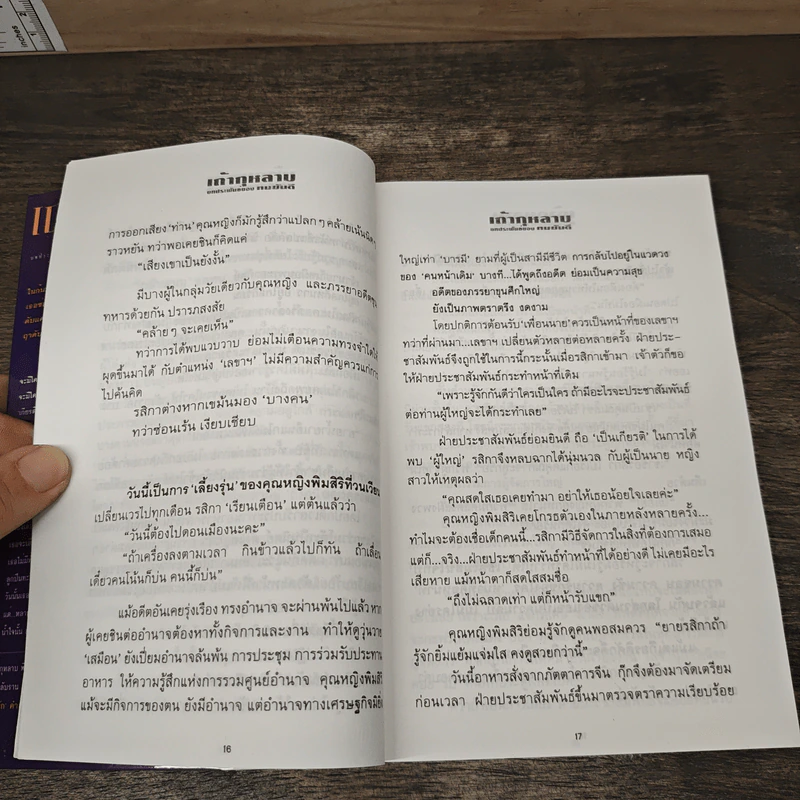 inches
เถ้ากุหลาบ
บทประพันธ์ของ กนธันดี
การออกเสียง ‘ท่าน’ คุณหญิงก็มักรู้สึกว่าแปลก ๆ คล้ายเน้นนิด
ราวหยัน ทว่าพอเคยชินก็คิดแค่
“เสียงเขาเป็นยังงั้น”
มีบางผู้ในกลุ่มวัยเดียวกับคุณหญิง และภรรยาอดีต
ทหารด้วยกัน ปรารภสงสัย
“คล้ายๆ จะเคยเห็น”
ทว่าการได้พบแวบวาบ ย่อมไม่เตือนความทรงจำใดให้
ผุดขึ้นมาได้ กับตำแหน่ง ‘เลขาฯ’ ไม่มีความสำคัญควรแก่การ
ไปค้นคิด
รสิกาต่างหากเขม้นมอง ‘บางคน’
ทว่าซ่อนเร้น เงียบเชียบ
วันนี้เป็นการ ‘เลี้ยงรุ่น’ ของคุณหญิงพิมสิริที่วนเวียน
เปลี่ยนเวรไปทุกเดือน รสิกา ‘เรียนเตือน’ แต่ต้นแล้วว่า
“วันนี้ต้องไปดอนเมืองนะคะ”
“ถ้าเครื่องลงตามเวลา กินข้าวแล้วไปก็ทัน ถ้าเลื่อน
เดี๋ยวคนโน้นก็บ่น คนนี้ก็บ่น”
แม้อดีตอันเคยรุ่งเรือง ทรงอำนาจ จะผ่านพ้นไปแล้ว หาก
ผู้เคยชินต่ออำนาจต้องหาทั้งกิจการและงาน ทำให้ดูวุ่นวาย
‘เสมือน’ ยังเปี่ยมอำนาจล้นพ้น การประชุม การร่วมรับประทาน
อาหาร ให้ความรู้สึกแห่งการรวมศูนย์อำนาจ คุณหญิงพิมสิริ
แม้จะมีกิจการของตน ยังมีอำนาจ แต่อำนาจทางเศรษฐกิจมิ
16
เถ้ากุหลาบ
บทประพันธ์ของ กนธันดี
ใหญ่เท่า ‘บารมี’ ยามที่ผู้เป็นสามีมีชีวิต การกลับไปอยู่ในแวดวง
ของ ‘คนหน้าเดิม’ บางที...ได้พูดถึงอดีต ย่อมเป็นความสุข
อดีตของภรรยาขุนศึกใหญ่
ยังเป็นภาพตราตรึง งดงาม
โดยปกติการต้อนรับ ‘เพื่อนนาย’ ควรเป็นหน้าที่ของเลขาฯ
ทว่าที่ผ่านมา...เลขาฯ เปลี่ยนตัวหลายต่อหลายครั้ง ฝ่ายประ-
ชาสัมพันธ์จึงถูกใช้ในการนี้ กระนั้นเมื่อรสิกาเข้ามา เจ้าตัวก็ขอ
ให้ฝ่ายประชาสัมพันธ์กระทำหน้าที่เดิม
“เพราะรู้จักกันดีว่าใครเป็นใคร ถ้ามีอะไรจะประชาสัมพันธ์
ต่อท่านผู้ใหญ่จะได้กระทำเลย”
ฝ่ายประชาสัมพันธ์ย่อมยินดี ถือ ‘เป็นเกียรติ’ ในการได้
พบ ‘ผู้ใหญ่’ รสิกาจึงหลบฉากได้นุ่มนวล กับผู้เป็นนาย หญิง
สาวให้เหตุผลว่า
“คุณสดใสเธอเคยทำมา อย่าให้เธอน้อยใจเลยค่ะ”
คุณหญิงพิมสิริเคยโกรธตัวเองในภายหลังหลายครั้ง...
ทำไมจะต้องเชื่อเด็กคนนี้...รสิกามีวิธีจัดการในสิ่งที่ต้องการเสมอ
แต่ก็...จริง...ฝ่ายประชาสัมพันธ์ทำหน้าที่ได้อย่างดี ไม่เคยมีอะไร
เสียหาย แม้หน้าตาก็สดใสสมชื่อ
“ถึงไม่ฉลาดเท่า แต่ก็หน้ารับแขก”
คุณหญิงพิมสิริย่อมรู้จักดูคนพอสมควร “ยายรสิกาถ้า
รู้จักยิ้มแย้มแจ่มใส คงดูสวยกว่านี้”
วันนี้อาหารสั่งจากภัตตาคารจีน กุ๊กจึงต้องมาจัดเตรียม
ก่อนเวลา ฝ่ายประชาสัมพันธ์ขึ้นมาตรวจตราความเรียบร้อย
17